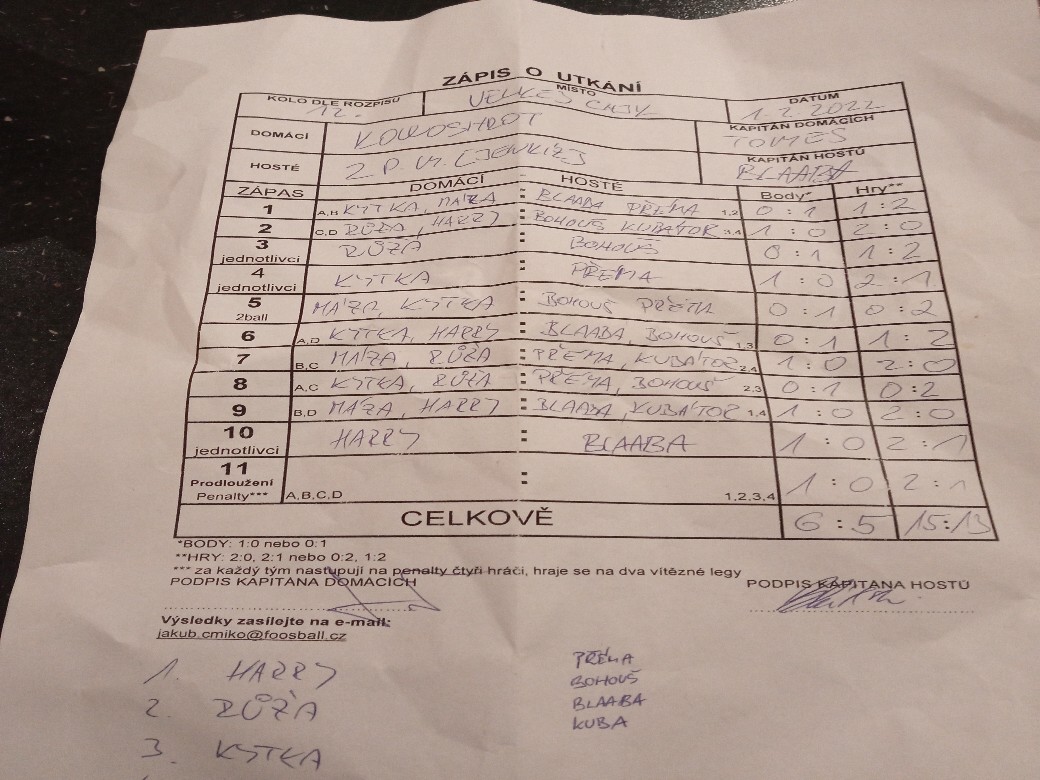 ZÁPIS O UTKÁNÍ
KOLO DLE ROZPISU MÍSTO DATUM
12. 1.2.2022
DOMÁCÍ KOPITÁN DOMÁCÍCH
TOMEŠ
HOSTÉ KAPITÁN HOSTŮ
2 P. M. BLAABA
ZÁPAS DOMÁCÍ : HOSTÉ Body* Hry**
1 A,B KYTKA, MÁZA : BLAABA PŘÉMA 1,2 0:1 1:2
2 C,D RŮŽA, HARRY : BOHOUŠ KUBÁTOR 3,4 1:0 2:0
3 jednotlivci RŮŽA : BOHOUŠ 0:1 1:2
4 jednotlivci KYTKA : PŘÉMA 1:0 2:1
5 2ball MÁZA, KYTKA : BOHOUŠ PŘÉMA 0:1 0:2
6 A,D KYTKA, HARRY : BLAABA, BOHOUŠ 1,3 0:1 1:2
7 B,C MÁZA, RŮŽA : PŘÉMA, KUBÁTOR 2,4 1:0 2:0
8 A,C KYTKA, RŮŽA : PŘÉMA, BOHOUŠ 2,3 0:1 0:2
9 B,D MÁZA, HARRY : BLAABA, KUBÁTOR 1,4 1:0 2:0
10 jednotlivci HARRY : BLAABA 1:0 2:1
11 Prodloužení Penalty*** A,B,C,D : 1,2,3,4 1:0 2:1
CELKOVĚ 6:5 15:13
*BODY: 1:0 nebo 0:1
**HRY: 2:0, 2:1 nebo 0:2, 1:2
*** za každý tým nastupují na penalty čtyři hráči, hraje se na dva vítězné legy
PODPIS KAPITÁNA DOMÁCÍCH PODPIS KAPITÁNA HOSTŮ
Výsledky zasílejte na e-mail:
jakub.cmiko@foosball.cz
1. HARRY
2. RŮŽA
3. KYTKA
PŘÉMA
BOHOUŠ
BLAABA
KUBA